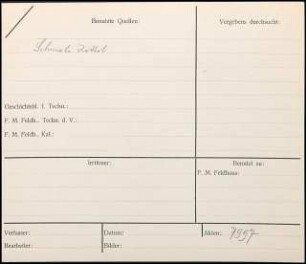 Benutzte Quellen:
Vergebens durchsucht:
Geschichtsbl. f. Techn.:
F. M. Feldh., Techn. d. V.:
F. M. Feldh., Kal.:
Irrtümer:
Benutzt zu:
F. M. Feldhaus:
Verfasser:
Datum:
Akten: 7997
Bearbeiter:
Bilder: